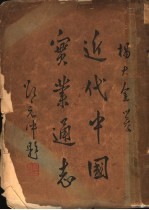 楊大金著
近代中國
實業通志